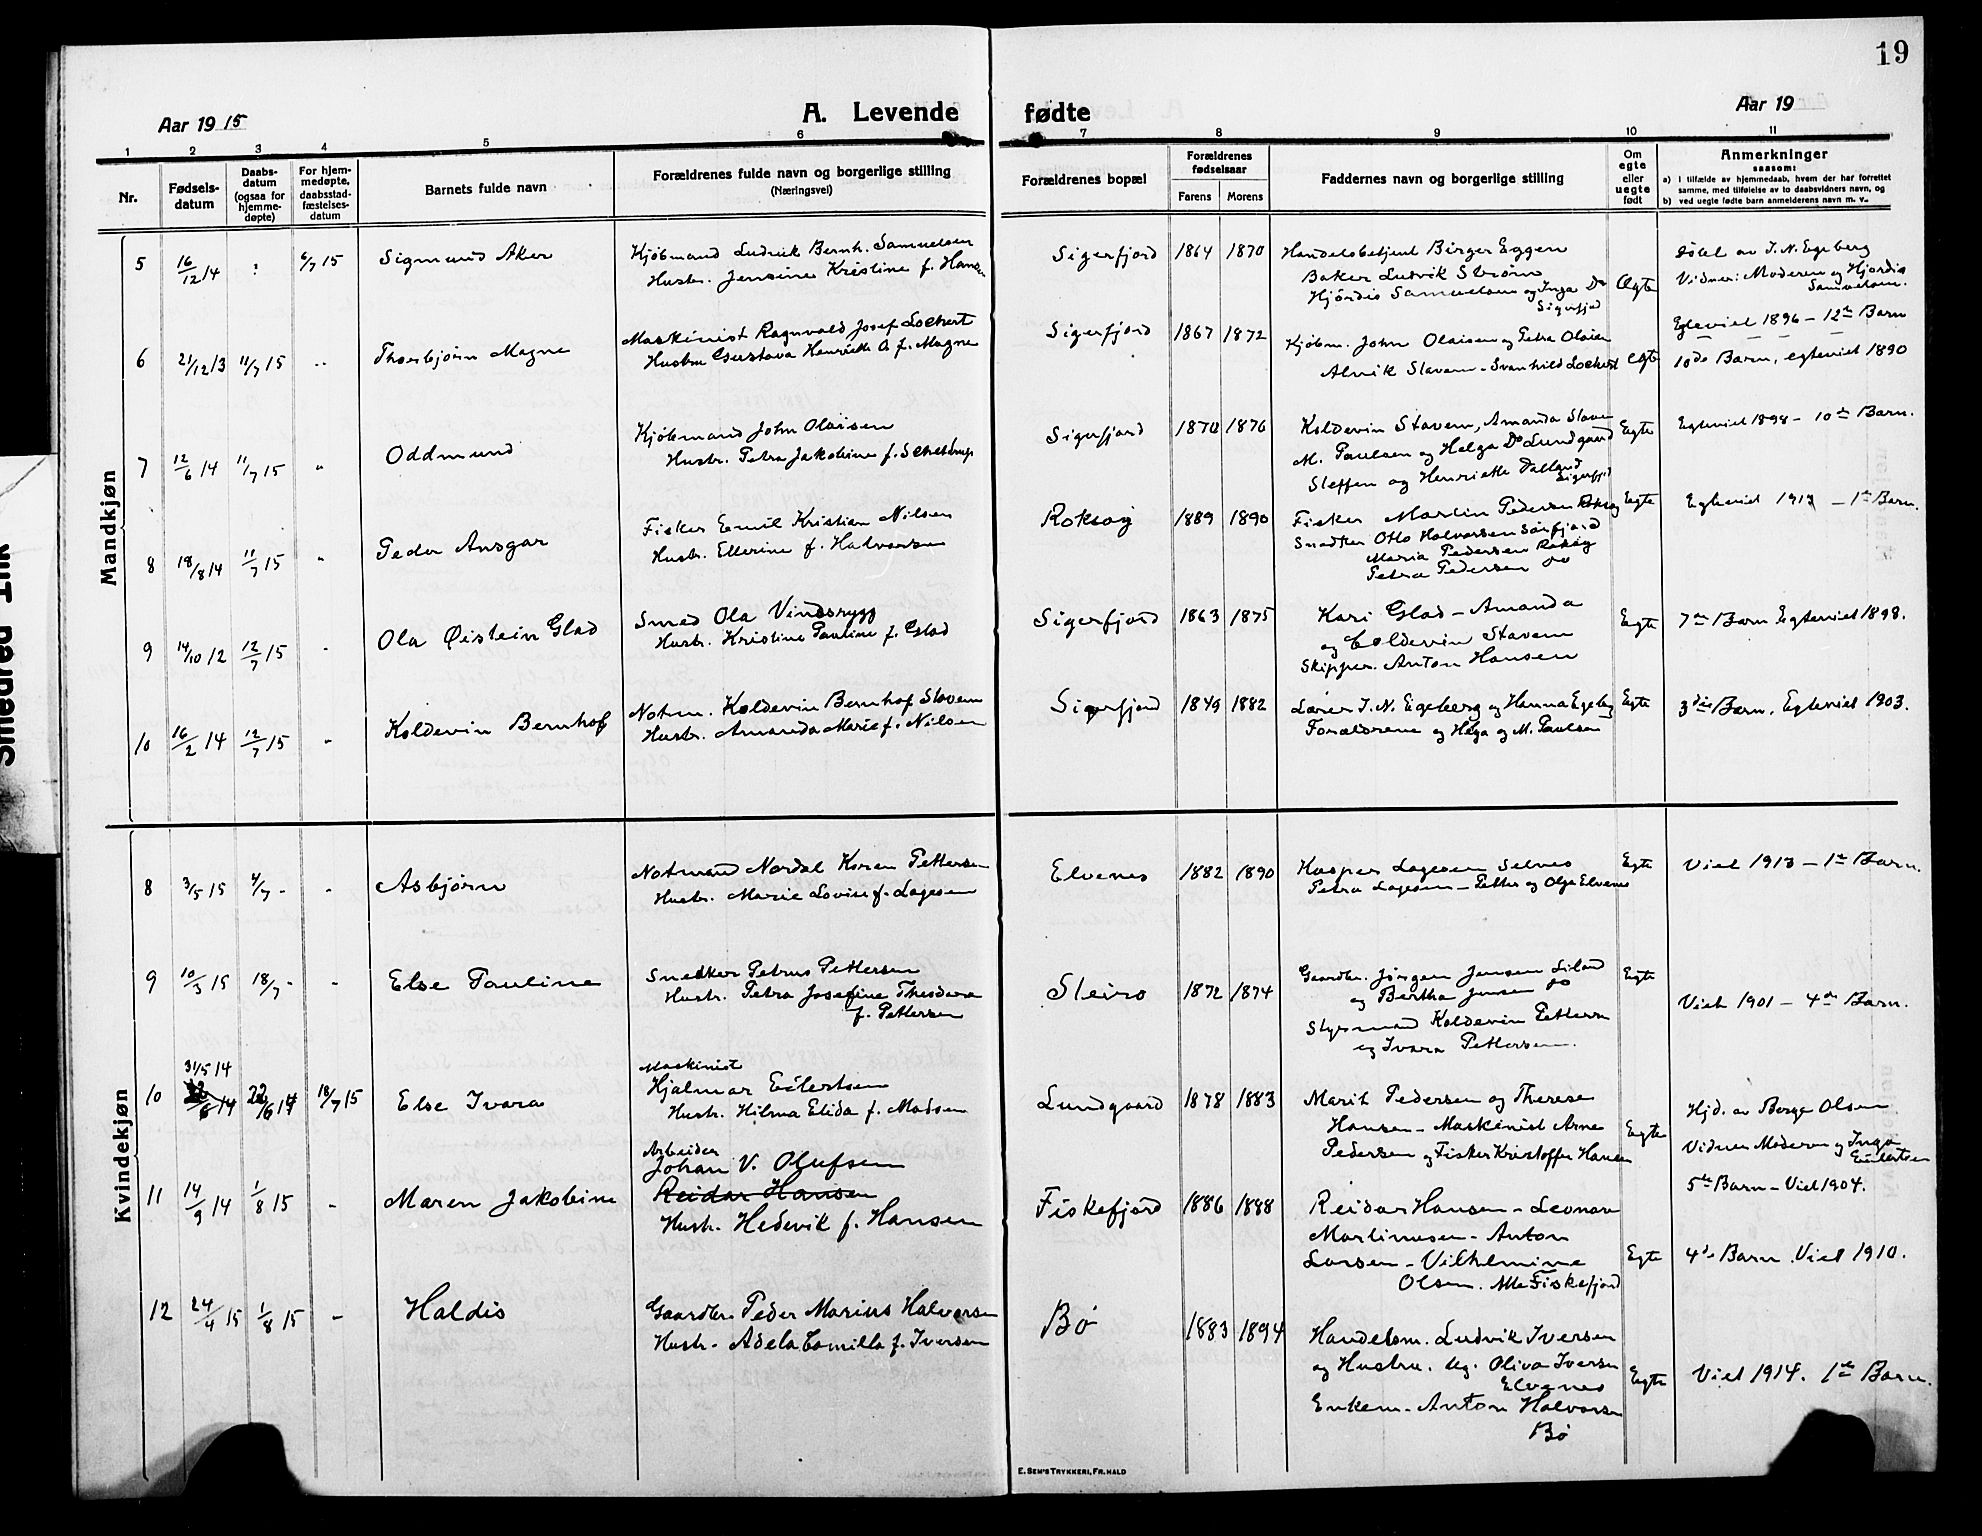 19
Aar 1915
A. Levende
fødte
Aar 19
1 2 3 4 5 6 7 8 9 10 11
Nr.
Fødsels-
datum
Daabs-
datum
(ogsaa for
hjemme-
døpte)
For hjem-
medøpte,
daabsstad-
fæstelses-
datum
Barnets fulde navn
Forældrenes fulde navn og borgerlige stilling
(Næringsvei)
Forældrenes bopæl
Forældrenes
fødselsaar
Farens Morens
Faddernes navn og borgerlige stilling
Om
egte
eller
uegte
født
Anmerkninger
saasom:
a) i tilfælde av hjemmedaab, hvem der har forrettet
samme, med tilføielse av to daabsvidners navn, og
b) ved uegte fødte barn anmelderens navn m. v.
Mandkjøn
5 16/12 14 6/7 15 Sigmund Aker
Kjøbmand Ludvik Bernh. Samuelsen
Hustr. Jensine Kristine f. Hansen
Sigerfjord 1864 1870
Handelsbetjent Birger Eggen
Baker Ludvik Strøm
Hjördis Samuelsen og Inga Do
Sigerfjord
Egte
døbt av J. N. Egeberg
Vidner: Moderen og Hjordis
Samuelsen.
Egteviet 1896 - 12te Barn
6 21/12 13 11/7 15 " Thorbjørn Magne
Maskinist Ragnvald Josef Lockert
Hustru Gustava Henriette A f. Magne
Sigerfjord 1867 1872
Kjøbm. John Olaisen og Petra Olaisen
Alvik Stavem - Svanhild Lockert
Egte
10de Barn, egteviet 1890
7 12/6 14 11/7 15 " Oddmund
Kjøbmand John Olaisen
Hustr. Petra Jakobine f.
Sigerfjord 1870 1876
Koldevin Stavem, Amanda Stavem
M. Paulsen og Helga Do Lundgaard
Steffen og Henriette Dalland
Sigerfjd
Egte
Egteviet 1898 - 10de Barn.
8 18/8 14 11/7 15 " Peder Ansgar
Fisker Emil Kristian Nilsen
Hustr. Ellerine f. Halvorsen
Roksøy 1889 1890
Fisker Martin Pedersen Roksøy
Snedker Otto Halvorsen Sørfjord
Maria Pedersen Roksøy
Petra Pedersen do
Egte
Egteviet 1913 - 1te Barn.
9 14/10 12 12/7 15 " Ola Øistein Glad
Smed Ola Vindsrygg
Hustr. Kristine Pauline f. Glad
Sigerfjord 1863 1875
Kari Glad - Amanda
og Coldevin Stavem
Skipper. Anton Hansen
Egte
7de Barn Egteviet 1898.
10 16/2 14 12/7 15 " Koldevin Bernhof
Notm. Koldevin Bernhof Stavem
Hustr. Amanda Marie f. Nilsen
Sigerfjord 1849 1882
Lærer J. N. Egeberg og Hanna Egeberg
Forældrene og Helga og M. Paulsen
Egte
3die Barn, Egteviet 1903.
Kvindekjøn
8 3/5 15 4/7 - " Asbjørn
Notmand Nordal Koren Pettersen
Hustr. Marie Lovise f. Lagesen
Elvenes 1882 1890
Kasper Lagesen Selnes
Petra Lagesen - Petter og Olga Elvenes
Egte
Viet 1913 - 1te Barn.
9 10/3 15 18/7 - " Else Pauline
Snedker Petrus Pettersen
Hustr. Petra Josefine Theodora
f. Pettersen
Steiro 1872 1874
Gaardbr. Jørgen Jensen Liland
og Bertha Jensen do
Styrmand Koldevin Pettersen
og Ivara Pettersen.
Egte
Viet 1901 - 4de Barn.
31/5 14
10 22/6 14 22/6 14 18/7 15 Else Ivara
Maskinist
Hjalmar Eilertsen
Hustr. Hilma Elida f. Madsen
Lundgaard 1878 1883
Marit Pedersen og Therese
Hansen - Maskinist Arne
Pedersen og Fisker Kristoffer Hansen
Egte
Hjd. av Berge Olsen
Vidner Moderen og Inga
Eilertsen
5te Barn - Viet 1904.
11 14/9 14 1/8 15 " Maren Jakobine
Arbeider
Johan V. Olufsen
Reidar Hansen
Hustr. Hedevik f. Hansen
Fiskefjord 1886 1888
Reidar Hansen - Leonora
Martinusen - Anton
Larsen - Vilhelmine
Olsen. Alle Fiskefjord
Egte
4de Barn. Viet 1910.
12 24/4 15 1/8 15 " Haldis
Gaardbr. Peder Marius Halvorsen
Hustr. Adela Camilla f. Iversen
Bø 1883 1894
Handelsm. Ludvik Iversen
og Hustru. Ug. Oliva Iversen
Elvenes
Enkem. Anton Halvorsen
Bø
Egte
Viet 1914. 1te Barn.
E. SEM'S TRYKKERI, FR. HALD